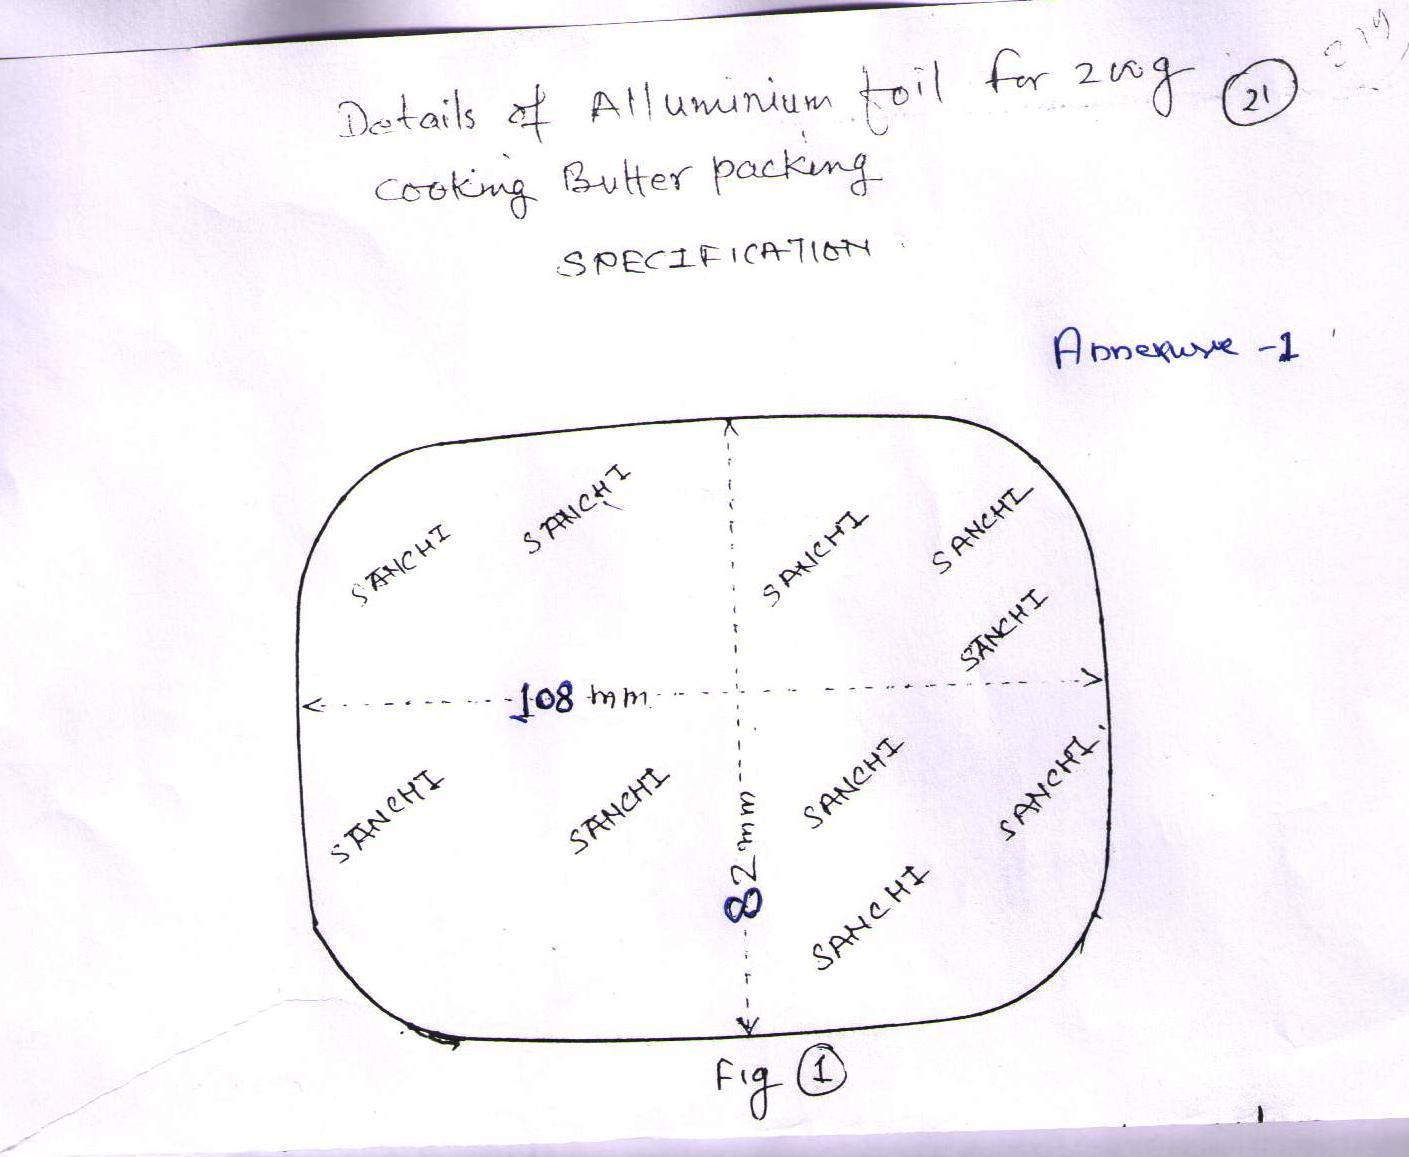 Details of Alluminium foil for 200g 21
cooking Butter packing
SPECIFICATION
Annexure -1
SANCHI SANCHI SANCHI SANCHI
SANCHI
108 mm
SANCHI SANCHI SANCHI SANCHI
82 mm
SANCHI
Fig 1